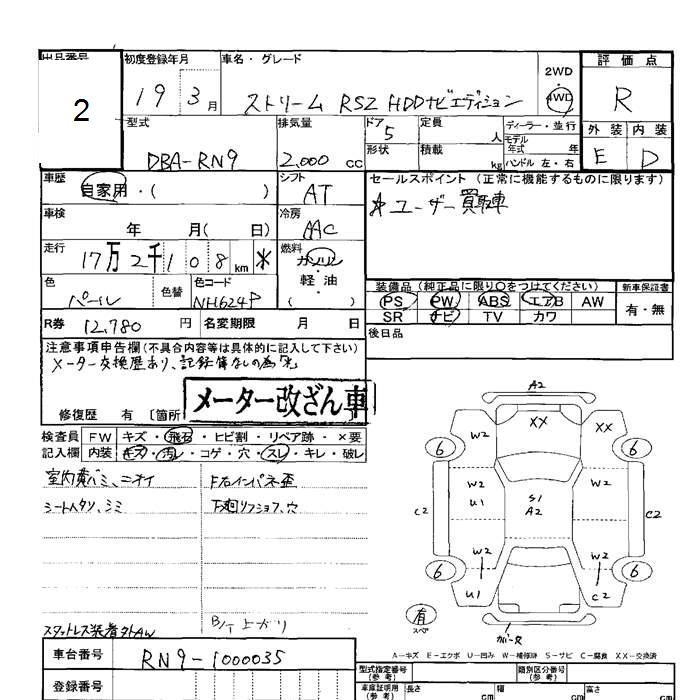 出品番号
2
初度登録年月
19 3月
車名・グレード
ストリーム RSZ HDDナビエディション
2WD
4WD
評価点
R
外装 内装
E D
型式
DBA-RN9
排気量
2,000 cc
ドア
5
形状
定員
人
積載
kg
ディーラー・並行
モデル年式 年
ハンドル 左・右
車歴
自家用・( )
シフト
AT
セールスポイント (正常に機能するものに限ります)
☆ユーザー買取車
車検
年 月( 日)
冷房
AAC
走行
17万2千108km *
燃料
ガソリン
軽・油
( )
色
パール
色替
色コード
NH624P
装備品(純正品に限り○をつけてください)
新車保証書
PS PW ABS エアB AW
SR ナビ TV カワ
有・無
R券 12,780 円
名変期限 月 日
後日品
注意事項申告欄(不具合内容等は具体的に記入して下さい)
メーター交換歴あり、記録簿なしの為
メーター改ざん車
修復歴 有 〔箇所
検査員 FW キズ・飛石・ヒビ割・リペア跡・×要
記入欄 内装 キズ・汚レ・コゲ・穴・スレ・キレ・破レ
室内黄バミ、ニオイ
F右インパネ歪
シートヘタリ、シミ
下廻リフショク、穴
スタットレス装着外AW
B/T上がり
車台番号 RN9-1000035
登録番号
A2
XX
W2
XX
6
6
W2
U1
S1
A2
W2
C2
C2
W2
W2
6
6
U1
C2
有
スペ
カバー欠
A－キズ E－エクボ U－凹み W－補修跡 S－サビ C－腐食 XX－交換済
型式指定番号(参考)
類別区分番号(参考)
車庫証明用(参考)
長さ cm
幅 cm
高さ cm